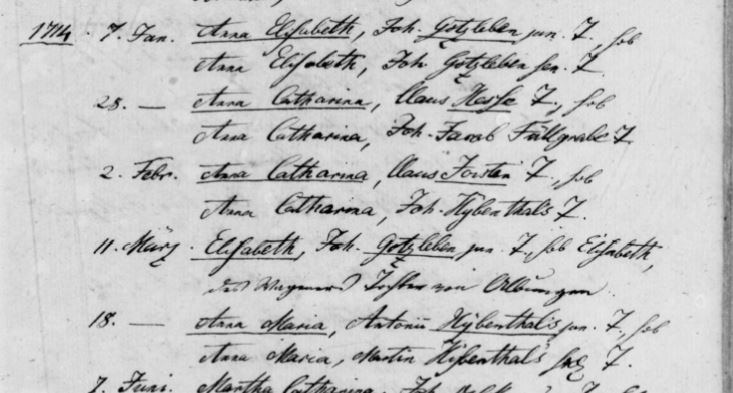 1714. 7. Jan. Anna Elisabeth, Joh. Götzleben jun. T., sub
Anna Elisabeth, Joh. Götzleben sen. T.
28. — Anna Catharina, Claus Hesse T., sub
Anna Catharina, Joh. Jacob Füllgrabe T.
2. Febr. Anna Catharina, Claus T., sub
Anna Catharina, Joh. Hybenthals T.
11. März. Elisabeth, Joh. Götzleben jun. T., sub Elisabeth,
des Wagners Tochter von
18. — Anna Maria, Antonii Hybenthals jun. T., sub
Anna Maria, Martin Hybenthals T.
7. Juni. Martha Catharina, Joh.